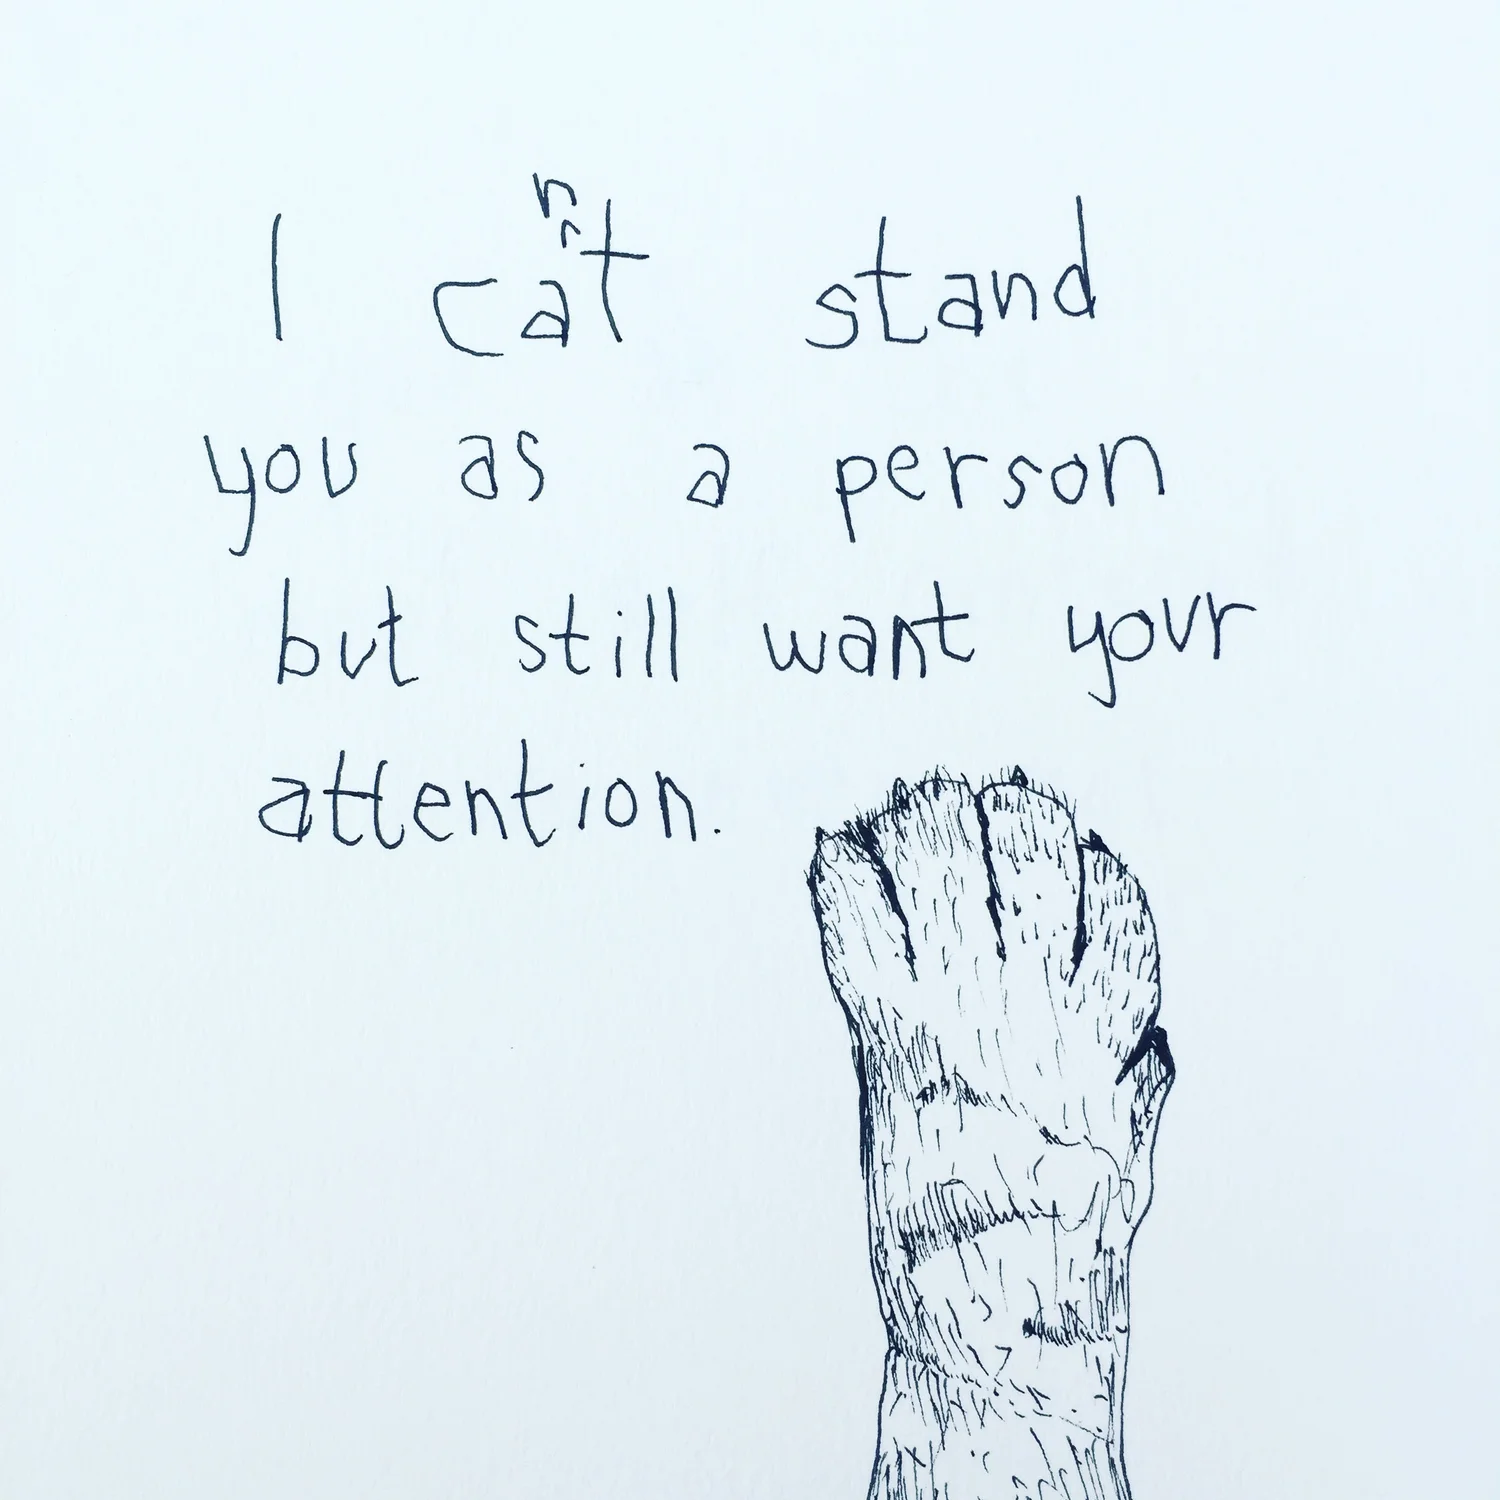 I caⁿt stand
you as a person
but still want your
attention.